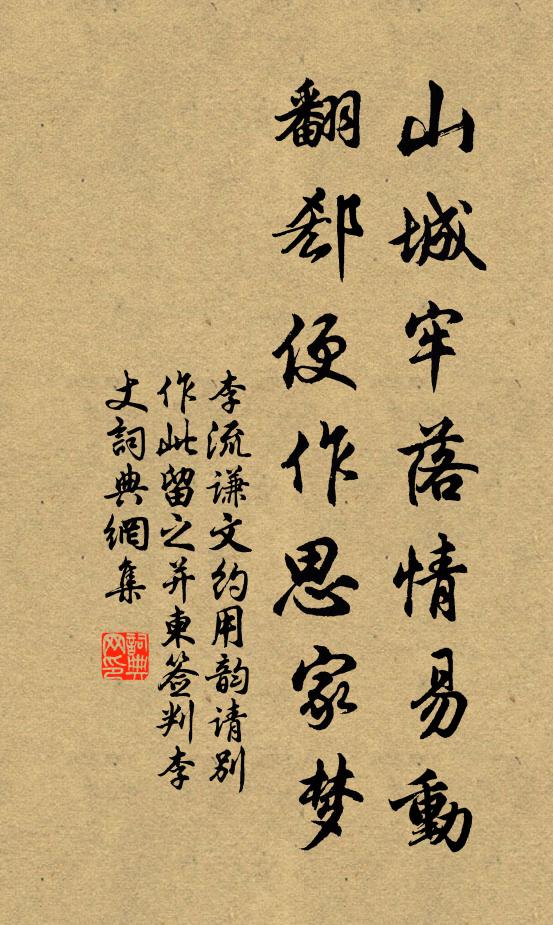 山城牢落情易動
翻郄便作思家梦
李流谦文约用韵请别
作此留之并東签判李
丈詞典網集
詞典
网印